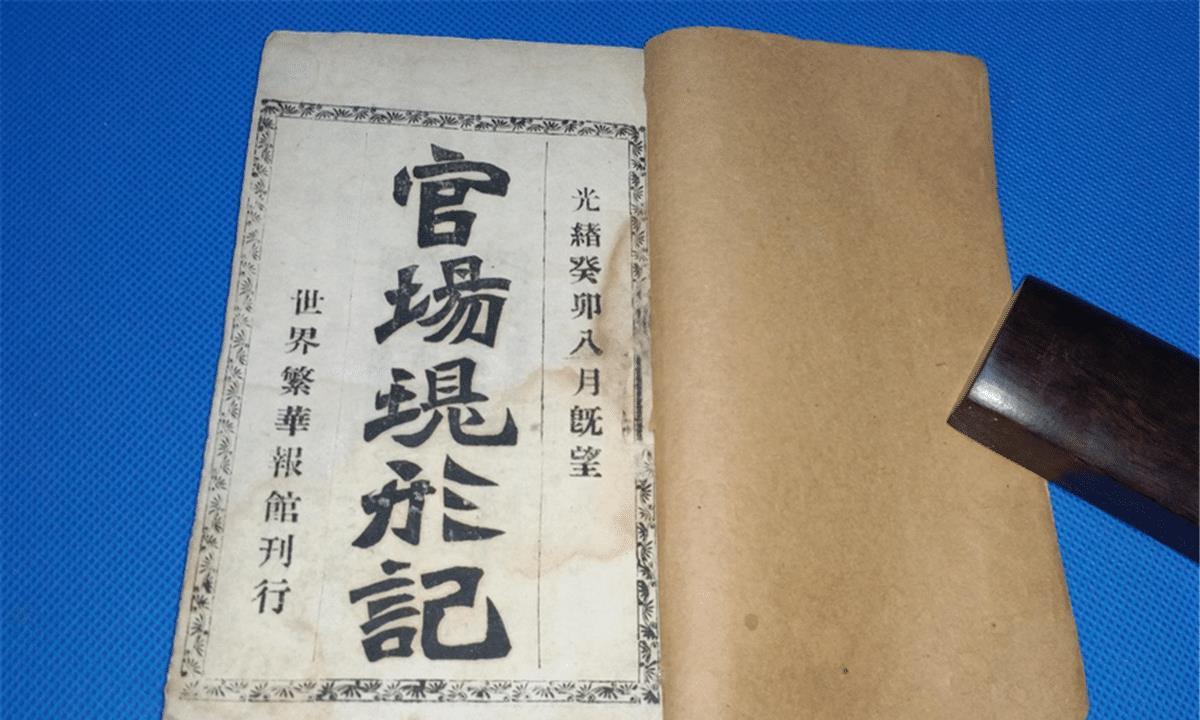 光緒癸卯八月旣望
官場現形記
世界繁華報館刊行